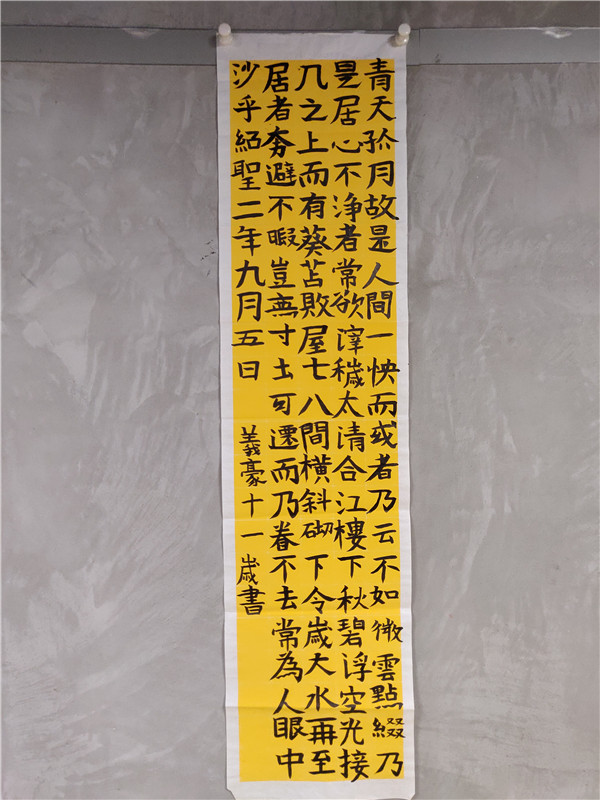 青天孤月故是人間一怏而或者乃云不如微雲點綴乃
是居心不淨者常欲滓穢太清合江樓下秋碧浮空光接
几之上而有葵苫敗屋七八間橫斜砌下今歲大水再至
居者奔避不暇豈無寸土可遷而乃眷不去常為人眼中
沙乎紹聖二年九月五日
義豪十一歲書